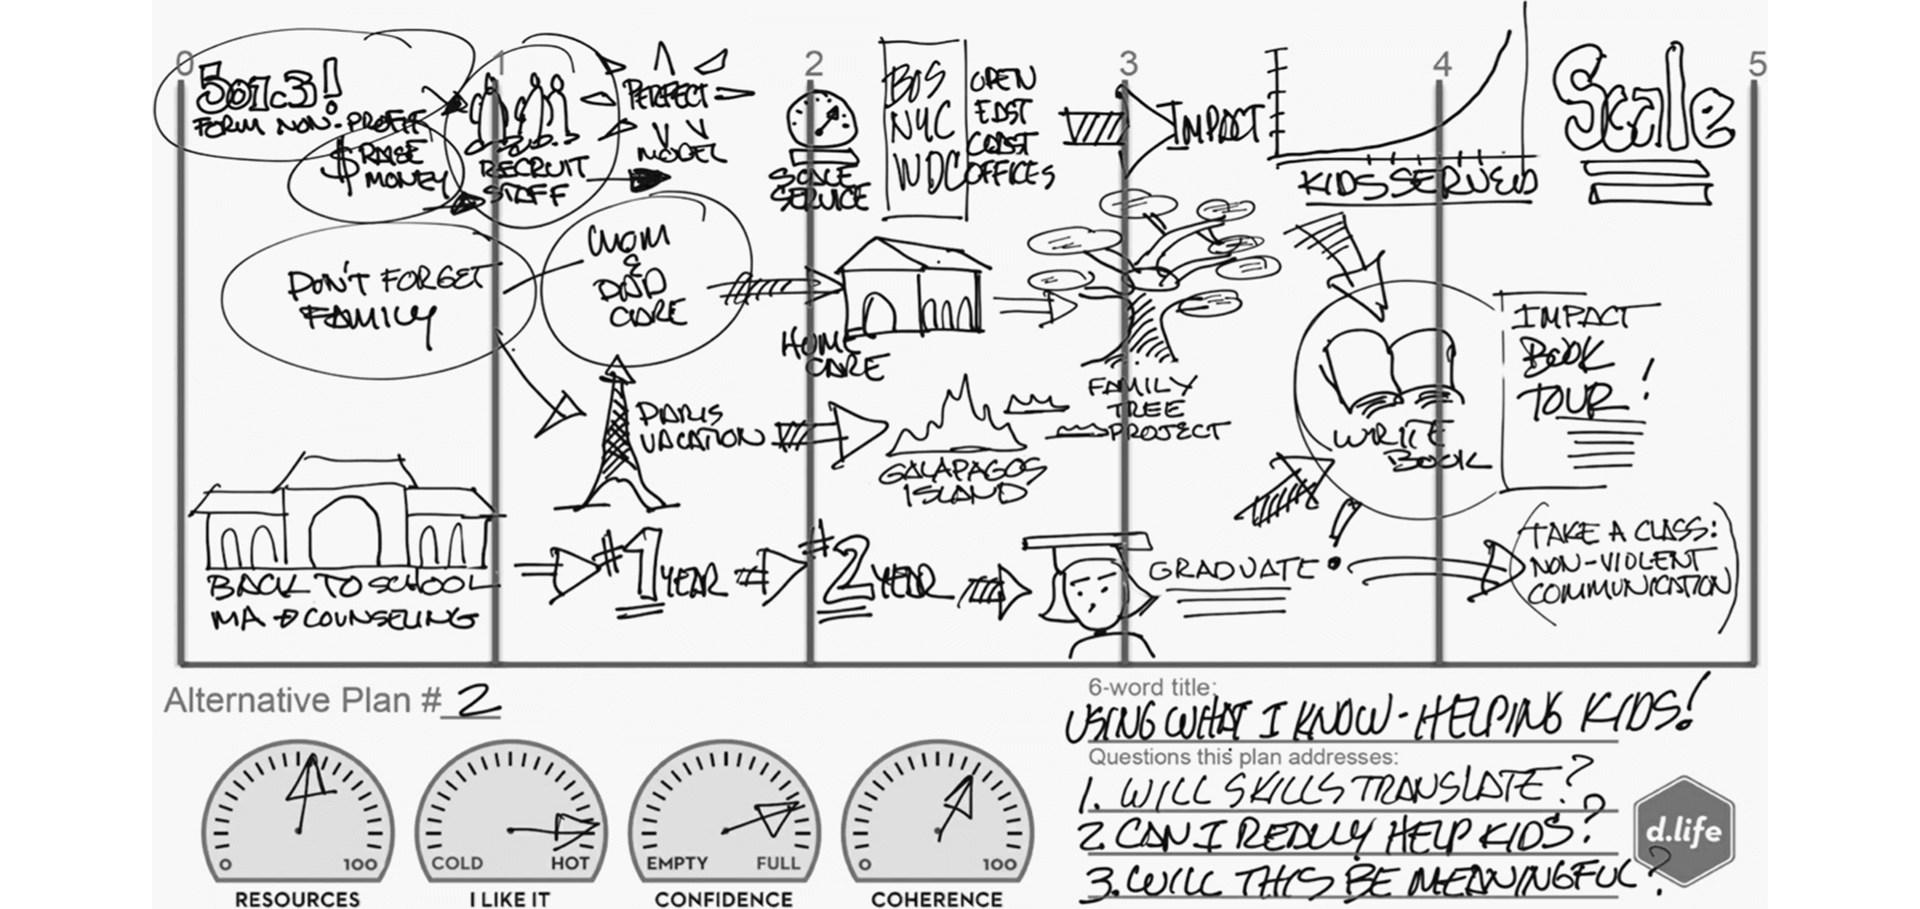 0
1
2
3
4
5
501c3!
FORM NON-PROFIT
$ RAISE
MONEY
RECRUIT
STAFF
PERFECT
MODEL
SCALE
SERVICE
BOS
NYC
WDC
OPEN
EAST
COAST
OFFICES
IMPACT
KIDS SERVED
Scale
DON'T FORGET
FAMILY
MOM
&
DAD
CARE
HOME
CARE
FAMILY
TREE
PROJECT
PARIS
VACATION
GALAPAGOS
ISLAND
WRITE
BOOK
IMPACT
BOOK
TOUR!
BACK TO SCHOOL
MA → COUNSELING
#1 YEAR
#2 YEAR
GRADUATE
TAKE A CLASS:
NON-VIOLENT
COMMUNICATION
Alternative Plan # 2
0 100
RESOURCES
COLD HOT
I LIKE IT
EMPTY FULL
CONFIDENCE
0 100
COHERENCE
6-word title:
USING WHAT I KNOW - HELPING KIDS!
Questions this plan addresses:
1. WILL SKILLS TRANSLATE?
2. CAN I REALLY HELP KIDS?
3. WILL THIS BE MEANINGFUL?
d.life